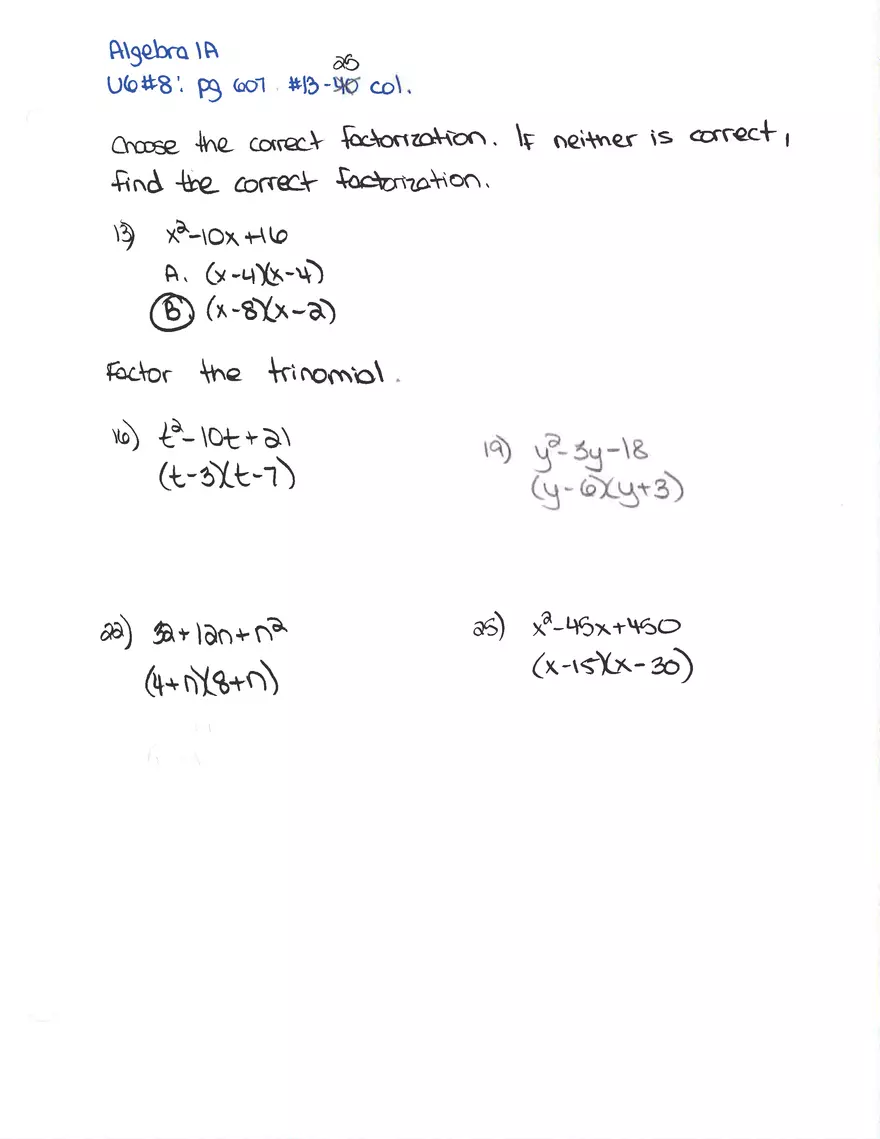 Algebra 1A
25
U6#8: pg 607. #13-40 col.
Choose the correct factorization. If neither is correct,
find the correct factorization.
13) x²-10x+16
A. (x-4)(x-4)
B. (x-8)(x-2)
Factor the trinomial.
16) t²-10t+21
(t-3)(t-7)
19) y²-3y-18
(y-6)(y+3)
22) 32+12n+n²
(4+n)(8+n)
25) x²-45x+450
(x-15)(x-30)